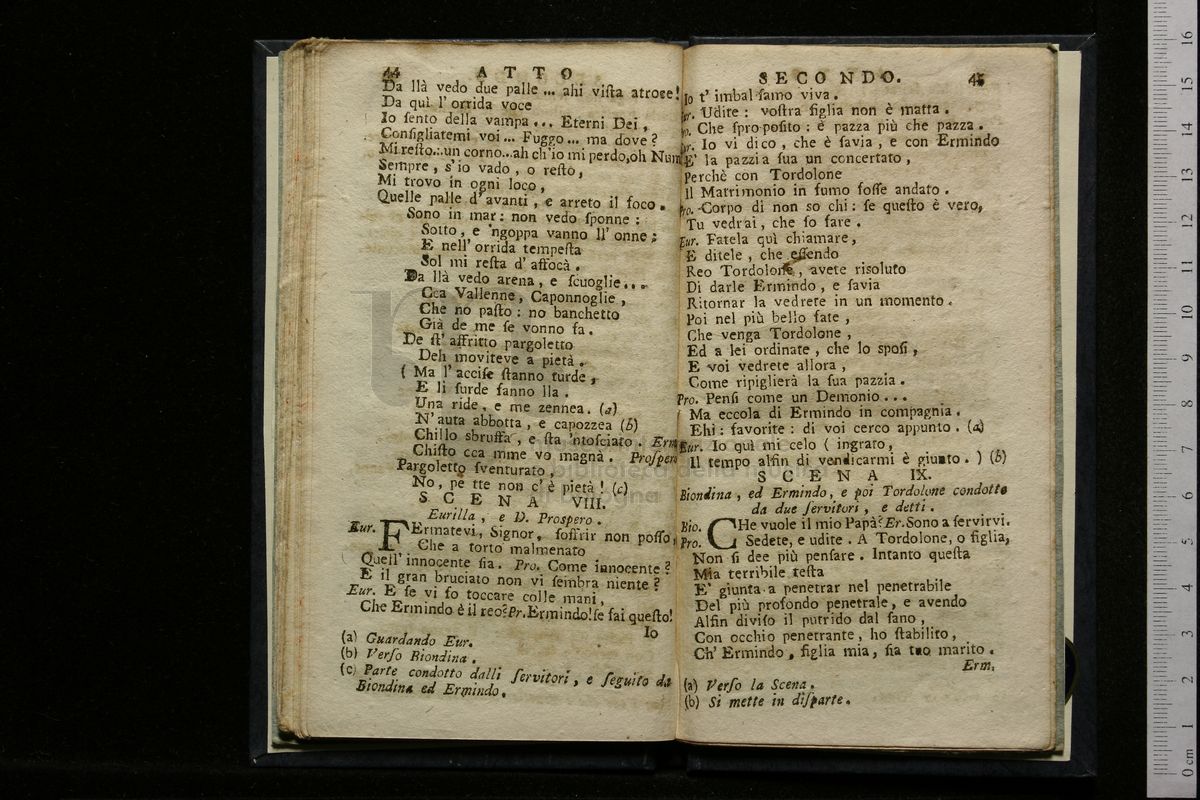 44 ATTO
Da llà vedo due palle ... ahi viſta atroce!
Da quì l' orrida voce
Io ſento della vampa ... Eterni Dei,
Conſigliatemi voi ... Fuggo ... ma dove?
Mi reſto... un corno...ah ch'io mi perdo,oh Num
Sempre, s'io vado, o reſto,
Mi trovo in ogni loco,
Quelle palle d'avanti, e arreto il foco.
Sono in mar: non vedo ſponne:
Sotto, e 'ngoppa vanno ll' onne;
E nell' orrida tempeſta
Sol mi reſta d' affocà.
Da llà vedo arena, e ſcuoglie...
Cca Vallenne, Caponnoglie,
Che no paſto: no banchetto
Già de me ſe vonno fa.
De ſt' affritto pargoletto
Deh moviteve a pietà.
( Ma l' acciſe ſtanno turde,
E li ſurde fanno lla.
Una ride, e me zennea. (a)
N' auta abbotta, e capozzea (b)
Chillo sbruffa, e ſta 'ntoſciato. Erm
Chiſto cca mme vo magnà. Proſper
Pargoletto ſventurato,
No, pe tte non c'è pietà! (c)
SCENA VIII.
Eurilla, e D. Proſpero.
Eur. FErmatevi, Signor, ſoffrir non poſſo,
Che a torto malmenato
Quell' innocente ſia. Pro. Come innocente?
E il gran bruciato non vi ſembra niente?
Eur. E ſe vi fo toccare colle mani,
Che Ermindo è il reo? Pr. Ermindo! ſe fai queſto!
Io
(a) Guardando Eur.
(b) Verſo Biondina.
(c) Parte condotto dalli ſervitori, e ſeguito da
Biondina ed Ermindo.
SECONDO. 45
Io t' imbalſamo viva.
ur. Udite: voſtra figlia non è matta.
ro. Che ſpropoſito: è pazza più che pazza.
ur. Io vi dico, che è ſavia, e con Ermindo
E' la pazzia ſua un concertato,
Perchè con Tordolone
Il Matrimonio in fumo foſſe andato.
Pro. Corpo di non so chi: ſe queſto è vero,
Tu vedrai, che ſo fare.
Eur. Fatela quì chiamare,
E ditele, che eſſendo
Reo Tordolone, avete riſoluto
Di darle Ermindo, e ſavia
Ritornar la vedrete in un momento.
Poi nel più bello fate,
Che venga Tordolone,
Ed a lei ordinate, che lo spoſi,
E voi vedrete allora,
Come ripiglierà la ſua pazzia.
Pro. Penſi come un Demonio...
Ma eccola di Ermindo in compagnia.
Ehi: favorite: di voi cerco appunto. (a)
Eur. Io quì mi celo ( ingrato,
Il tempo alfin di vendicarmi è giunto. ) (b)
SCENA IX.
Biondina, ed Ermindo, e poi Tordolone condotto
da due ſervitori, e detti.
Bio. CHe vuole il mio Papà? Er. Sono a ſervirvi.
Pro. Sedete, e udite. A Tordolone, o figlia,
Non ſi dee più penſare. Intanto queſta
Mia terribile teſta
E' giunta a penetrar nel penetrabile
Del più profondo penetrale, e avendo
Alfin diviſo il putrido dal ſano,
Con occhio penetrante, ho ſtabilito,
Ch' Ermindo, figlia mia, ſia tuo marito.
Erm.
(a) Verſo la Scena.
(b) Si mette in diſparte.